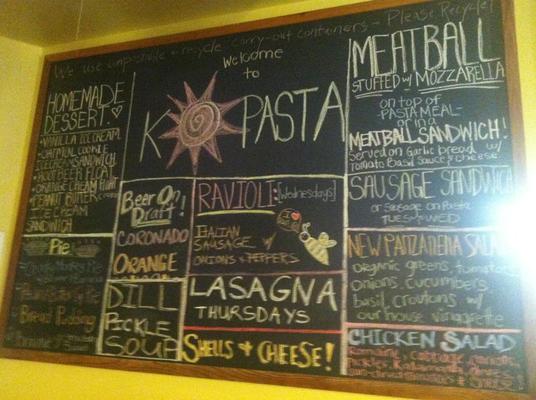 We use compostable + recycle carry-out containers - Please Recycle!
Welcome
to
KO PASTA
HOMEMADE
DESSERT:
• VANILLA ICE CREAM
• OATMEAL COOKIE
ICE CREAM SANDWICH
• ROOT BEER FLOAT
• ORANGE CREAM FLOAT
• PEANUT BUTTER
ICE CREAM
SANDWICH
Pie
Bread Pudding
Beer On
Draft!
CORONADO
ORANGE
DILL
PICKLE
SOUP
RAVIOLI: [Wednesdays]
ITALIAN
SAUSAGE W/
ONIONS & PEPPERS
I
LASAGNA
THURSDAYS
SHELLS + CHEESE!
MEATBALL
STUFFED w/ MOZZARELLA
on top of
PASTA MEAL -
or in a
MEATBALL SANDWICH!
Served on Garlic bread w/
Tomato Basil Sauce & cheese
SAUSAGE SANDWICH
or Sausage on Pasta
TUES & WED
NEW PANZANELLA SALAD
organic greens, tomatoes,
onions, cucumbers,
basil, croutons w/
our house vinagrette
CHICKEN SALAD
Romaine, Cabbage, carrots,